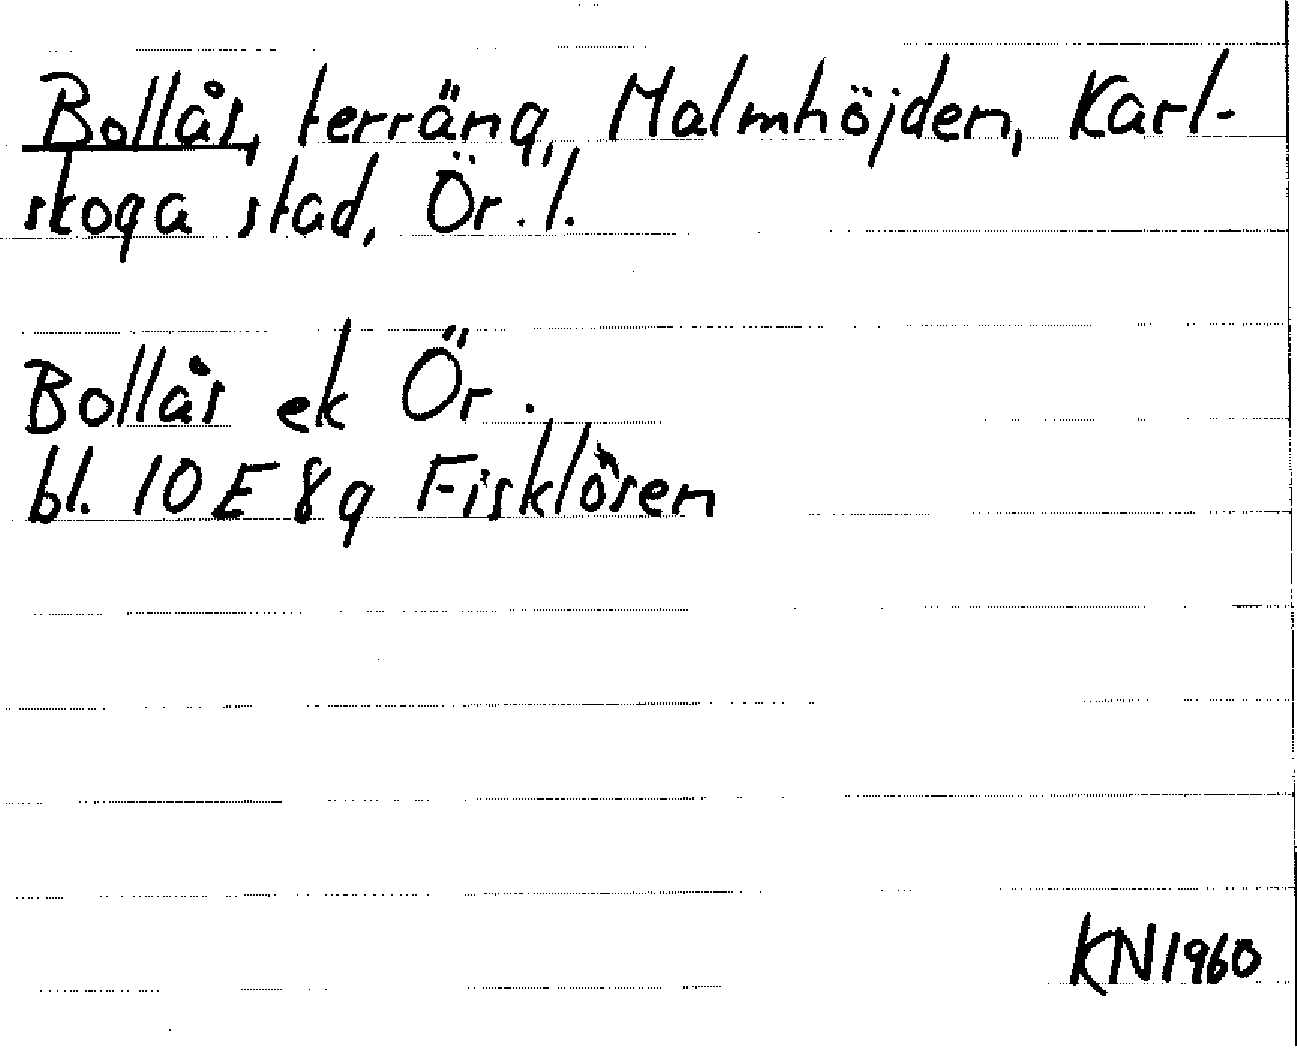 Bollås, terräng, Malmhöjden, Karl-
skoga stad, Ör. l.
Bollås ek Ör.
bl. 10 E 8g Fisklösen
KN1960